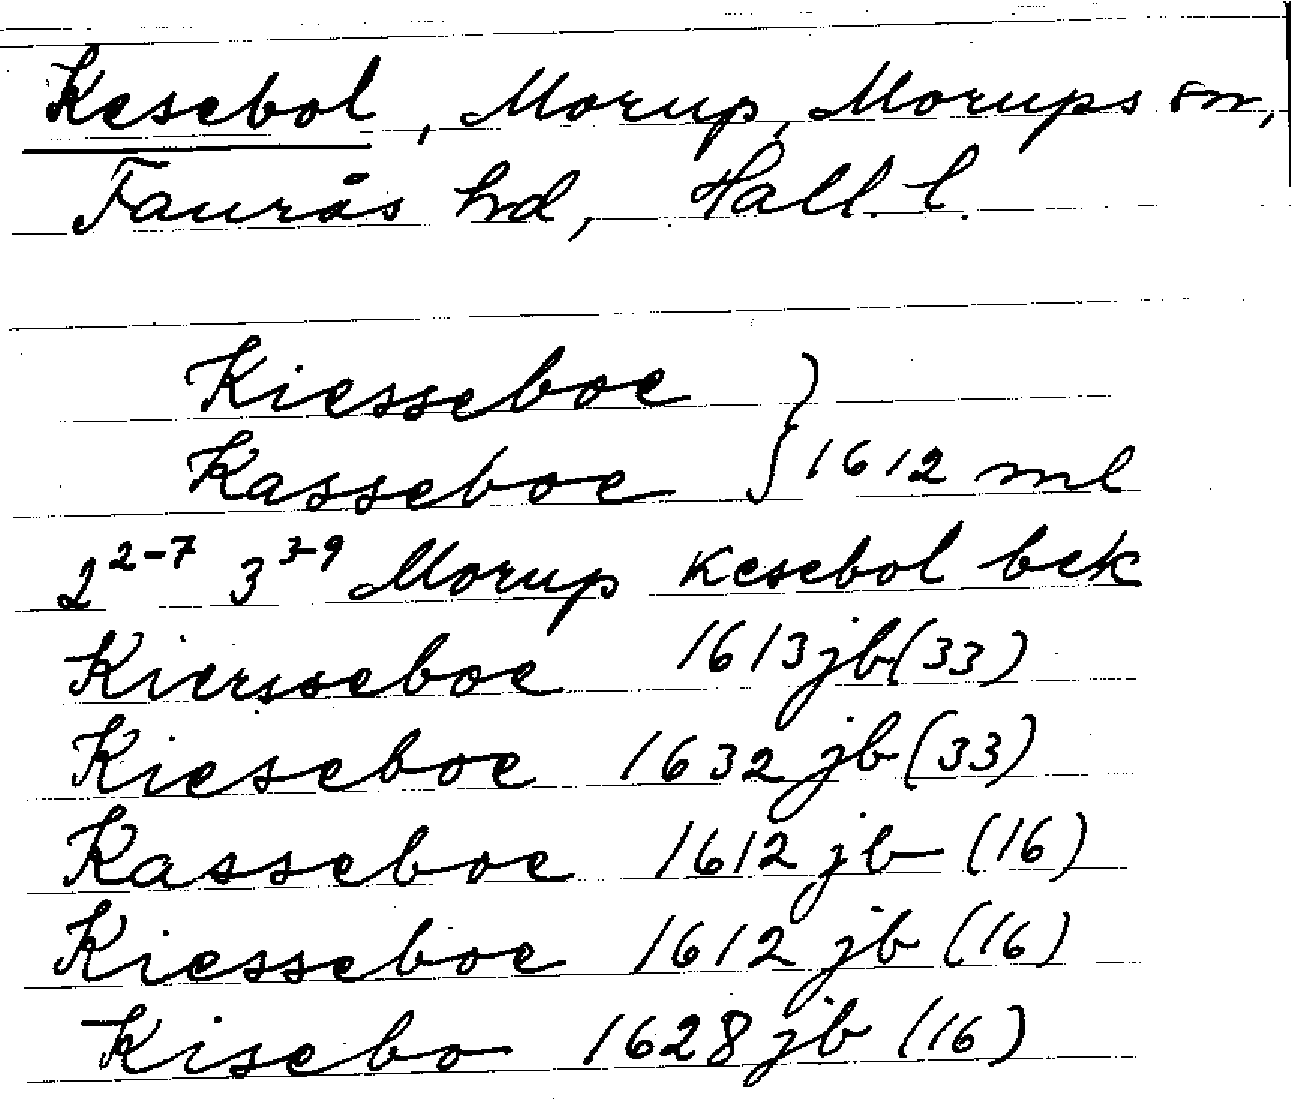 Kesebol, Morup, Morups sn,
Faurås hd, Hall. l.
Kiesseboe
Kasseboe } 1612 ml
2²⁻⁷ 3³⁻⁹ Morup Kesebol bek
Kiersseboe 1613 jb (33)
Kieseboe 1632 jb (33)
Kasseboe 1612 jb (16)
Kiesseboe 1612 jb (16)
Kisebo 1628 jb (16)